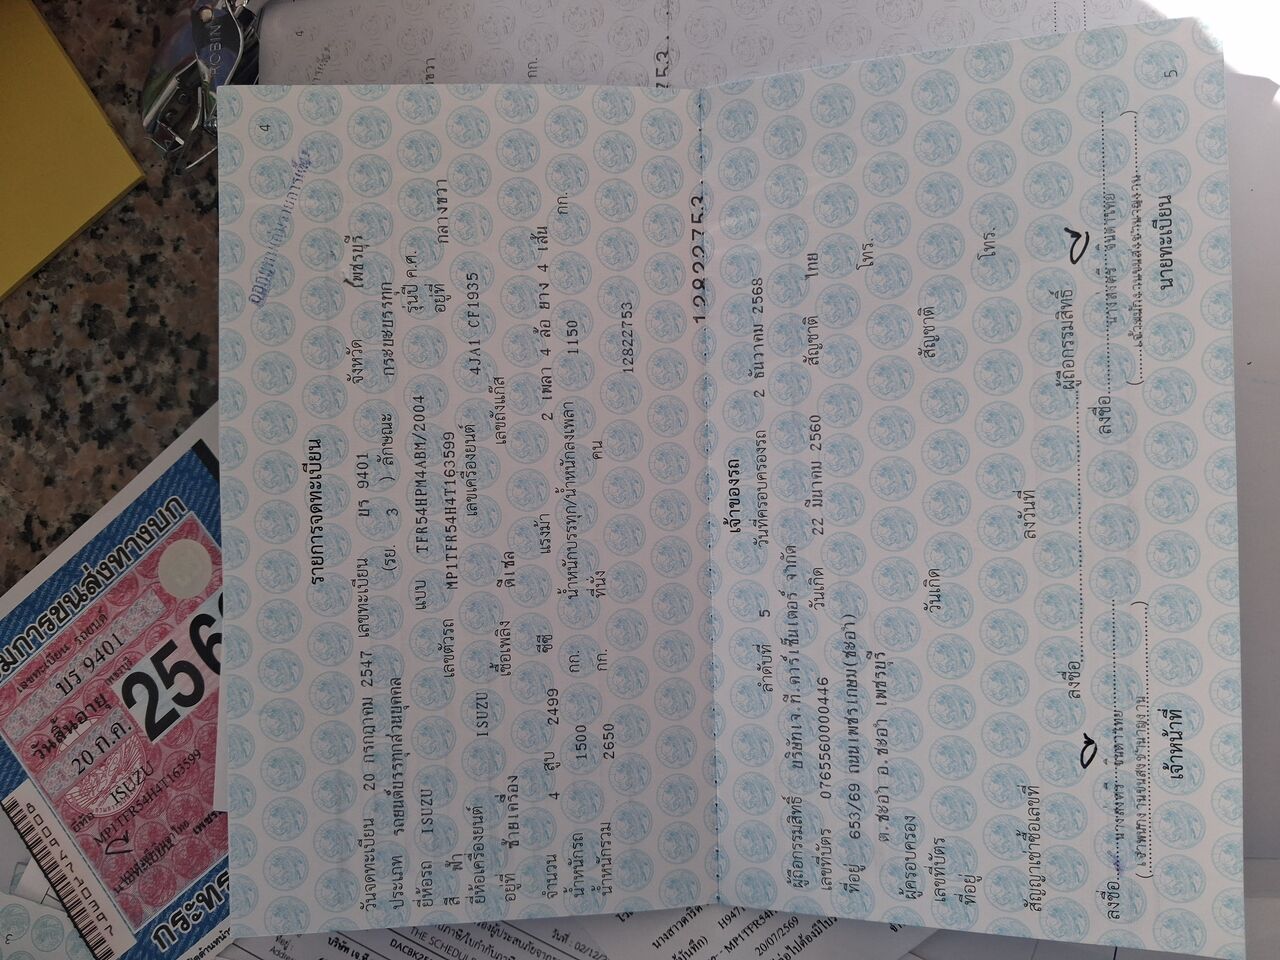 4
ออกแทนเล่มเดิม
รายการจดทะเบียน
วันจดทะเบียน 20 กรกฎาคม 2547 เลขทะเบียน บร 9401 จังหวัด เพชรบุรี
ประเภท รถยนต์บรรทุกส่วนบุคคล (รย. 3 ) ลักษณะ กระบะบรรทุก
ยี่ห้อรถ ISUZU แบบ TFR54HPM4ABM/2004 รุ่นปี ค.ศ.
สี ฟ้า เลขตัวรถ MP1TFR54H4T163599 อยู่ที่ กลางขวา
ยี่ห้อเครื่องยนต์ ISUZU เลขเครื่องยนต์ 4JA1 CF1935
อยู่ที่ ซ้ายเครื่อง เชื้อเพลิง ดีเซล เลขถังแก๊ส
จำนวน 4 สูบ 2499 ซีซี แรงม้า 2 เพลา 4 ล้อ ยาง 4 เส้น
น้ำหนักรถ 1500 กก. น้ำหนักบรรทุก/น้ำหนักลงเพลา 1150 กก.
น้ำหนักรวม 2650 กก. ที่นั่ง คน
12822753
12822753
5
เจ้าของรถ
ลำดับที่ 5 วันที่ครอบครองรถ 2 ธันวาคม 2568
ผู้ถือกรรมสิทธิ์ บริษัทเจ.ที.คาร์เซ็นเตอร์ จำกัด
เลขที่บัตร 0765560000446 วันเกิด 22 มีนาคม 2560 สัญชาติ ไทย
ที่อยู่ 653/69 ถนนเพชรเกษม(ชะอำ) โทร.
ต.ชะอำ อ.ชะอำ เพชรบุรี
ผู้ครอบครอง
เลขที่บัตร วันเกิด สัญชาติ
ที่อยู่ โทร.
สัญญาเช่าซื้อเลขที่ ลงวันที่
ลงชื่อ ผู้ถือกรรมสิทธิ์
ลงชื่อ ลงชื่อ
เจ้าหน้าที่ นายทะเบียน
กรมการขนส่งทางบก
เลขทะเบียน รถยนต์
บร 9401
เพชรบุรี
วันสิ้นอายุ
20 ก.ค.
256
ยี่ห้อ ISUZU
MP1TFR54H4T163599
ROBIN